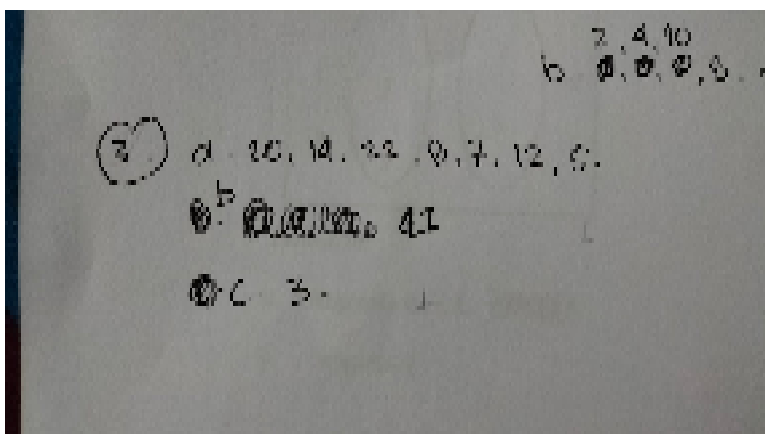 2, 4, 10
b. 8.
3. a. 20, 14, 22, 9, 7, 12,
b. 41
c. 3.